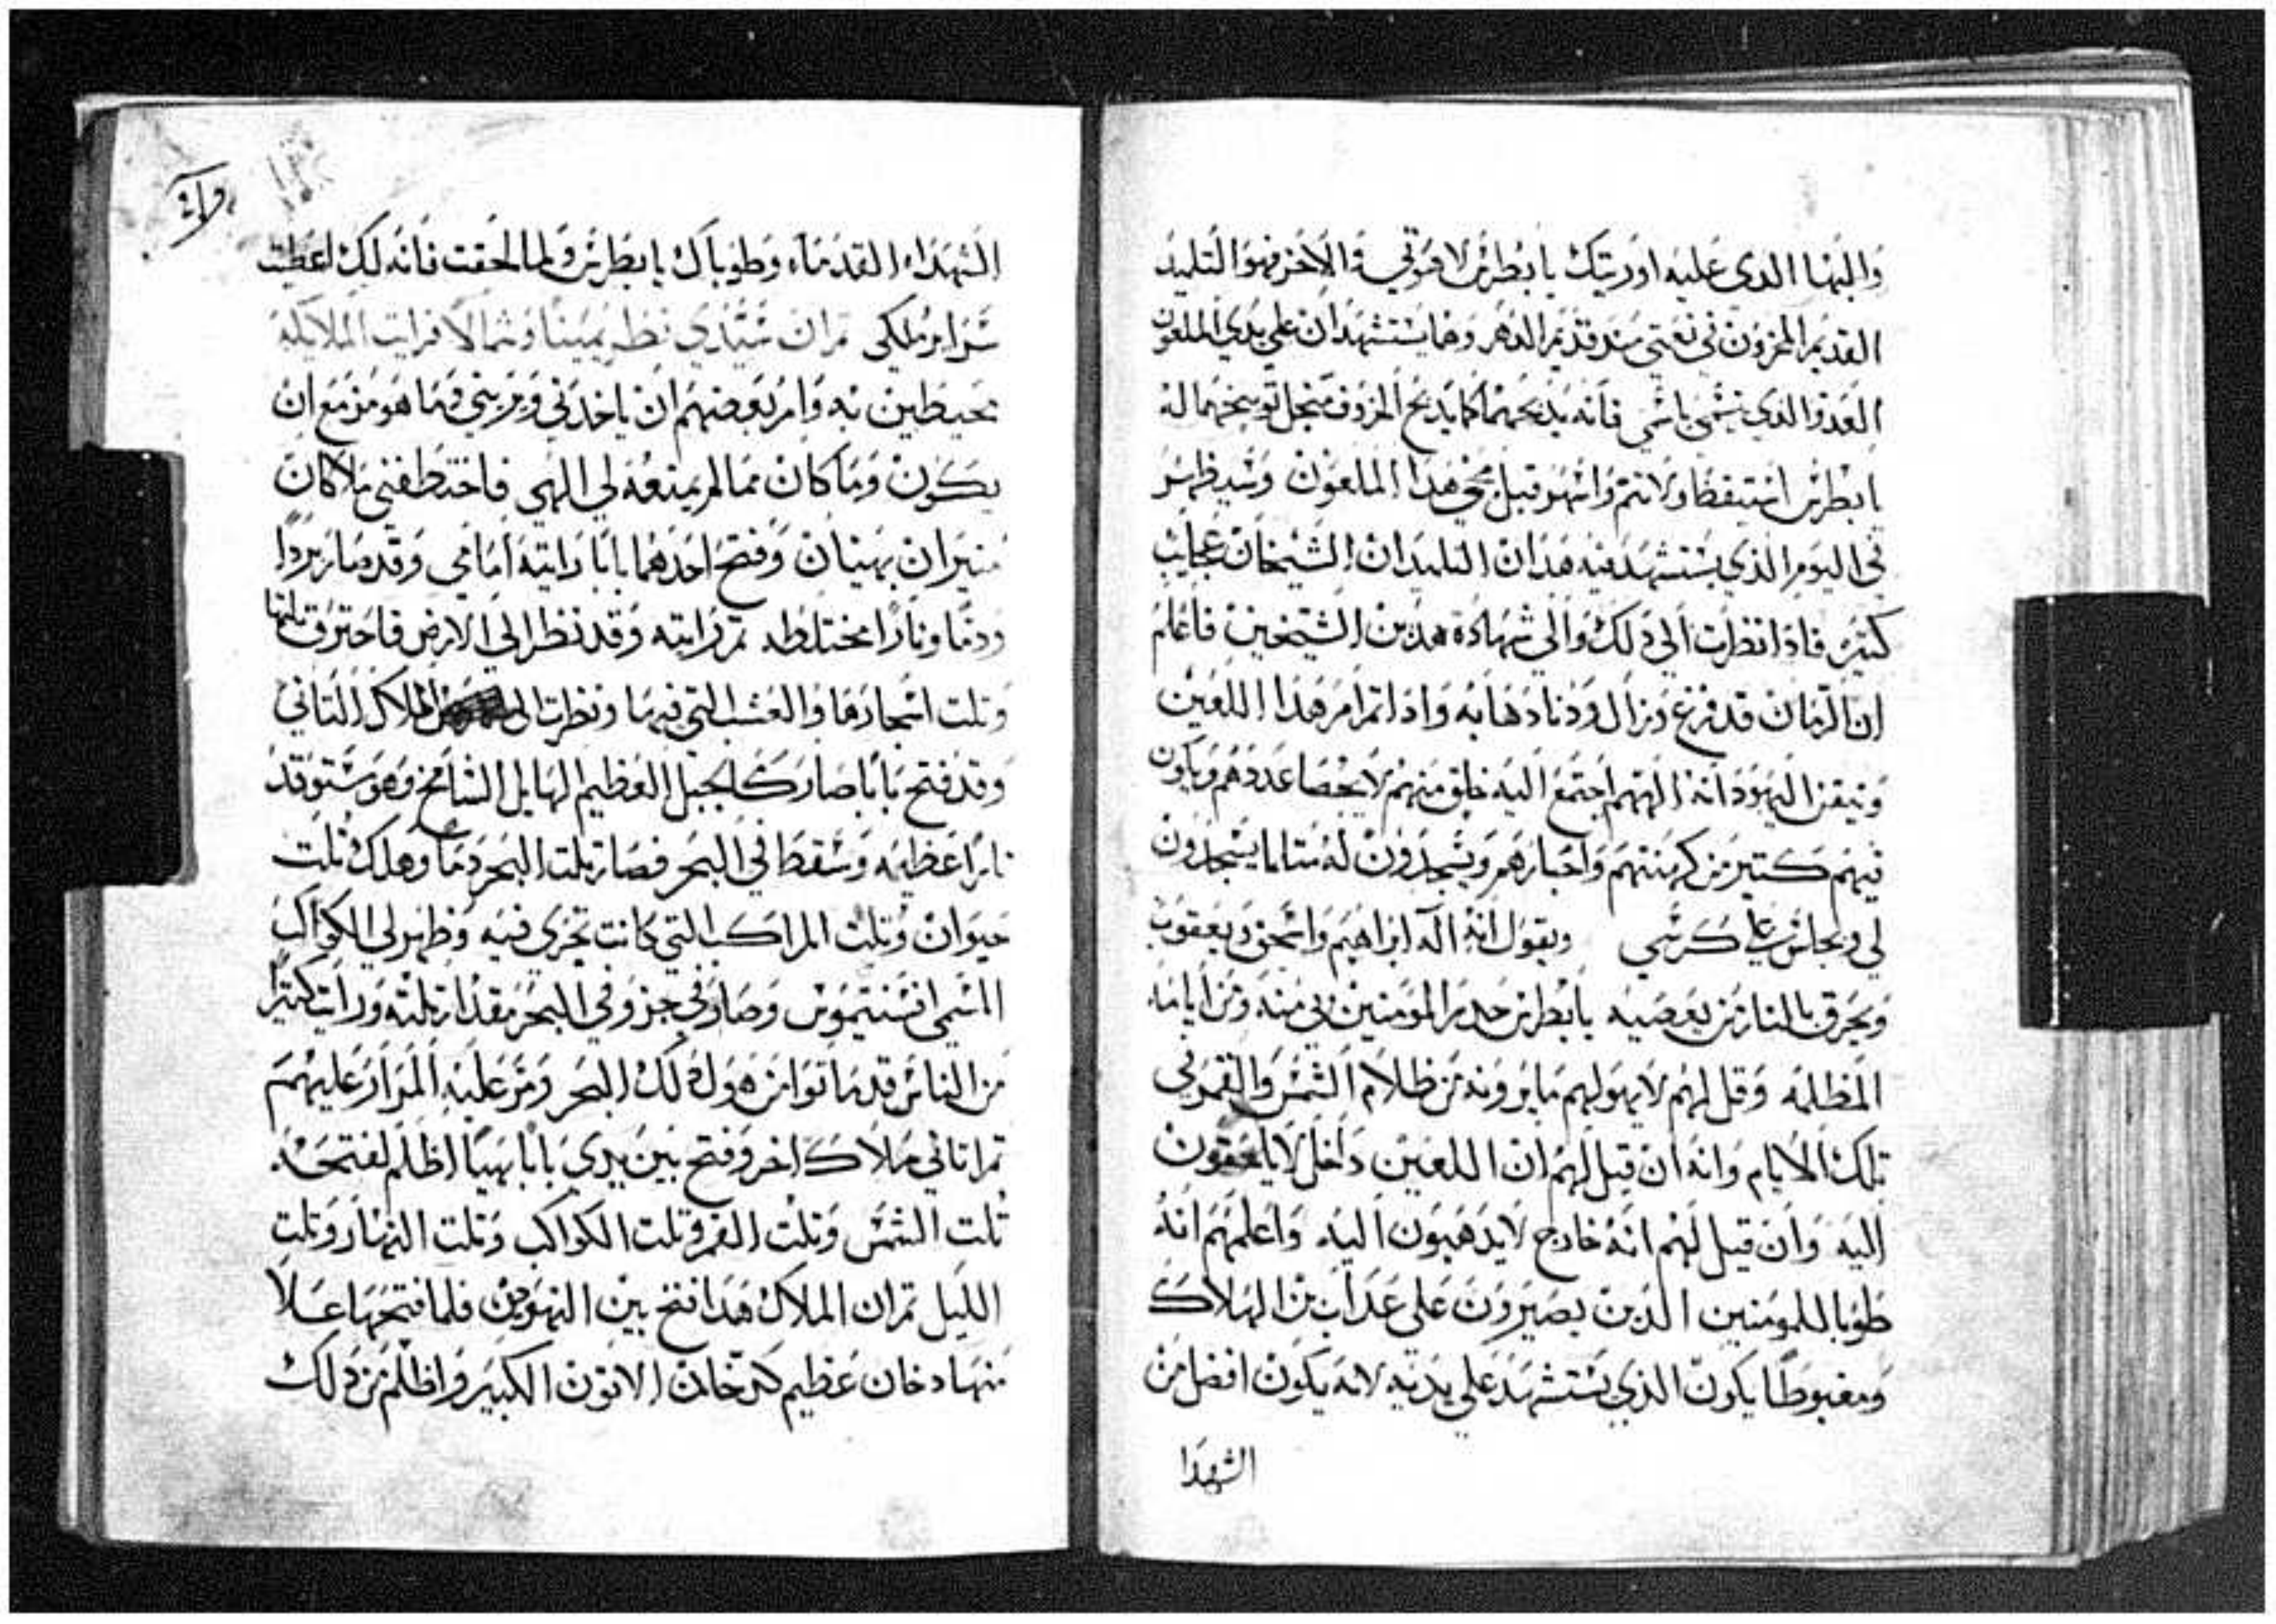 والبها الدى عليه اوريتك يا بطرس لاخوتي والاخر فهو التلميد
القديم المخزون في نعمتي مند قديم الدهر وهما يستشهدان علي يدي الملعون
العدو الدي يتسمي باسمي فانه يدبحهما كما يدبح الخروف من اجل توبيخهما له
يا بطرس استيقظا ولا تنم واسهر قبل مجي هدا الملعون وسيظهر
في اليوم الذي يستشهد فيه هدان التلميدان الشيخان عجايب
كتيره فادا نظرت الي دلك والي شهادة هدين الشيخين فاعلم
ان الزمان قد فرغ وزال ودنا دهابه وادا تم امر هدا اللعين
وتيقن اليهود انه الههم اجتمع اليه خلق منهم لا يحصا عددهم ويكون
فيهم كتير من كهنتهم واحبارهم ويسجدون له متلما يسجدون
لي ويجلس على كرسي ويقول انه اله ابراهيم واسحق ويعقوب
ويحرق بالنار من يعصيه يا بطرس حدر المومنين بي منه ومن ايامه
المظلمه وقل لهم لا يهولهم ما يرونه من ظلام الشمس والقمر في
تلك الايام وانه ان قيل لهم ان اللعين داخل لا يلحقون
اليه وان قيل لهم انه خارج لا يدهبون اليه واعلمهم انه
طوبا للمومنين الذين يصبرون علي عداب من الهلاك
ومغبوطا يكون الذي يستشهد علي يديه لانه يكون افضل من
الشهدا
الشهداء القدماء وطوباك يا بطرس ولما لحقت فانه لك اعطيت
سراير ملكي تم ان سيدي نظر يمينا وشمالا فرايت الملايكه
محيطين به وامر بعضهم ان ياخدني ويريني فيما هو مزمع ان
يكون وما كان مما لم يمنعه لي الهي فاختطفني ملاكان
منيران بهيان وفتح احدهما بابا رايته امامي وقد صار بردا
ودما ونارا مختلطه تم رايته وقد نظر الي الارض فاحترق تلتها
وتلت اشجارها والعشب التي فيها ونظرت الى الملاك التاني
وقد فتح بابا صار كالجبل العظيم الهايل الشامخ وهو يستوقد
نارا عظيمه وسقط في البحر فصار تلت البحر دما وهلك تلت
حيوان وتلت المراكب التي كانت تجري فيه وظهر لي الكواكب
المسمي افسنتيموس وصار في جزو في البحر مقدار تلته ورايت كتيرا
من الناس قد ماتوا من هول دلك البحر ومر عليه المرار عليهم
تم اتاني ملاك اخر وفتح بين يدي بابا بهيبا اظلم لفتحه
تلت الشمس وتلت القمر وتلت الكواكب وتلت النهار وتلت
الليل تم ان الملاك هدا فتح بين النهرين فلما فتحها علا
منها دخان عظيم كدخان الاتون الكبير واظلم من دلك